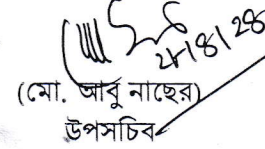 ২৮/৪/২৪
(মো. আবু নাছের)
উপসচিব